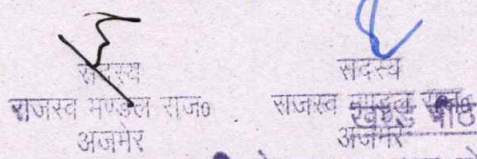 सदस्य
राजस्व मण्डल राज०
अजमेर
सदस्य
राजस्व मण्डल राज०
खण्ड पीठ
अजमेर